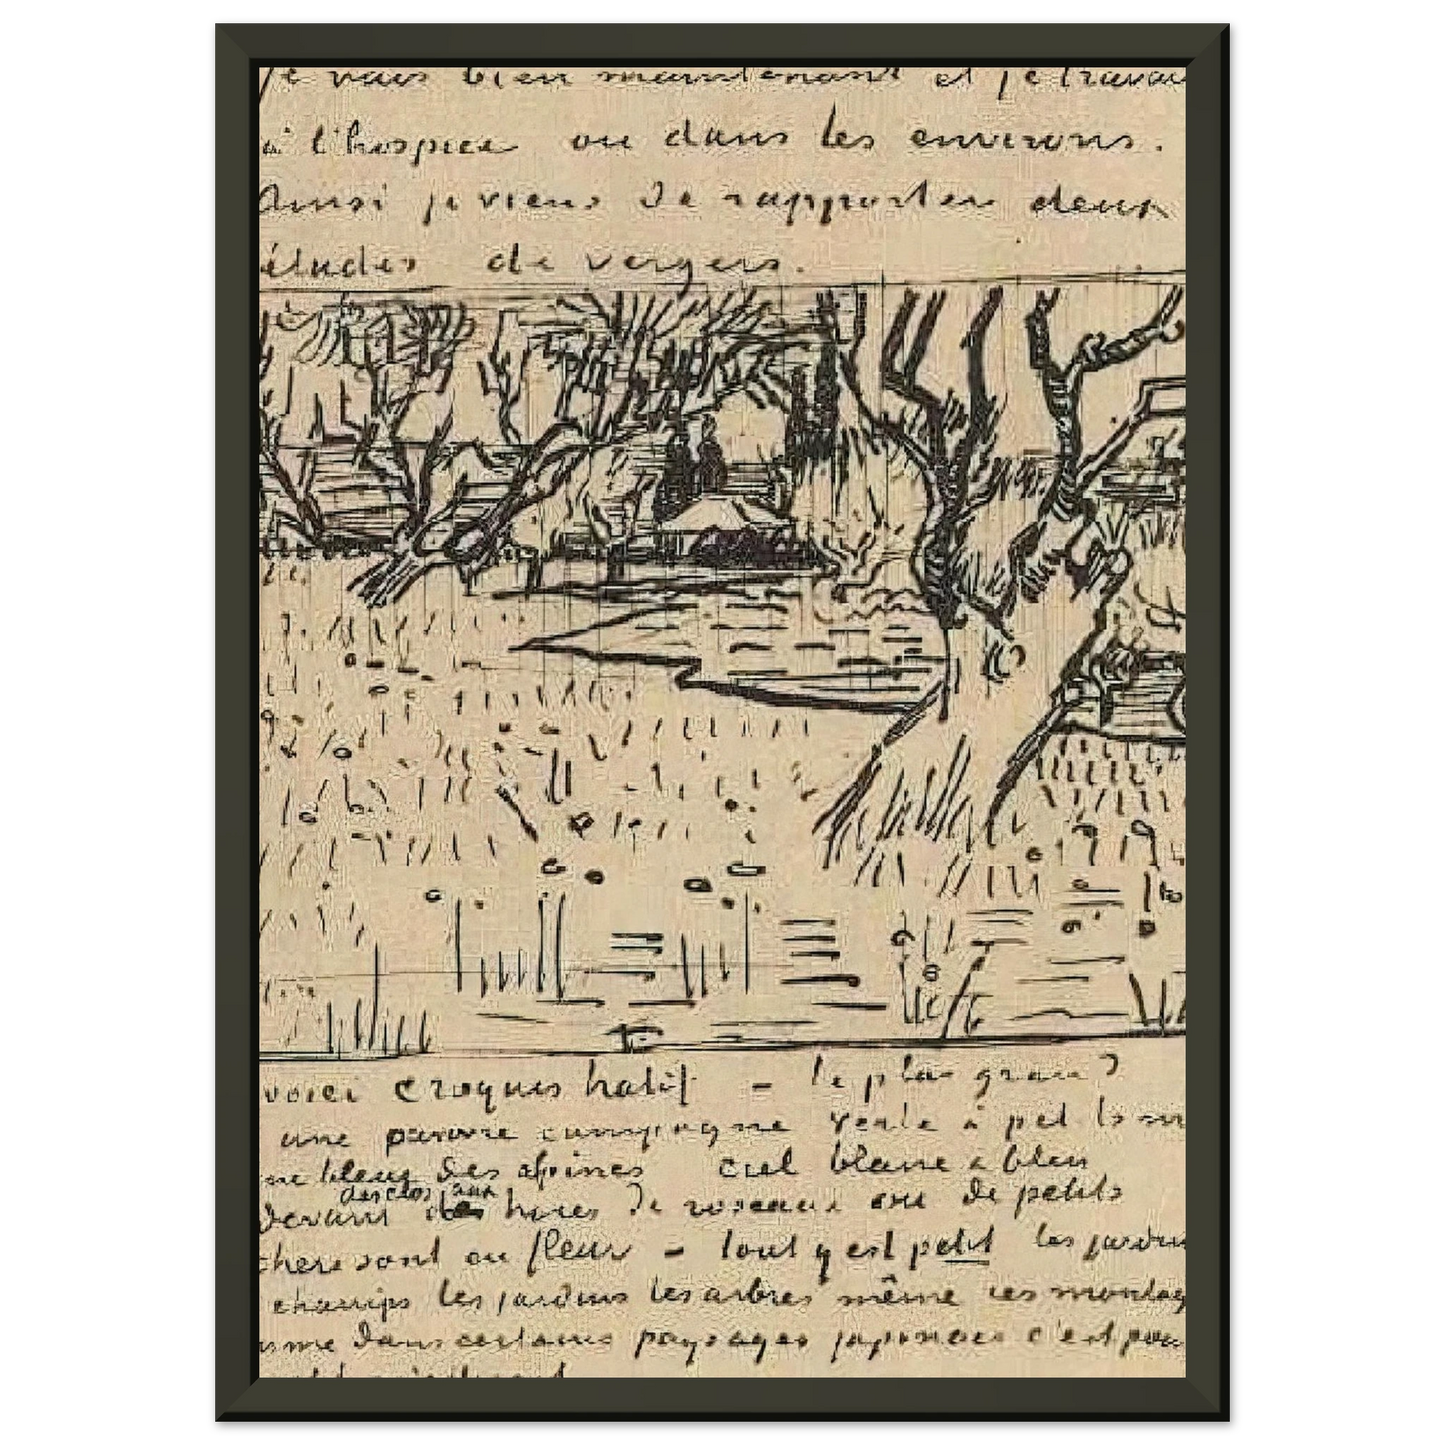 Je vais bien maintenant et je travai
à l'hospice ou dans les environs.
Ainsi je viens de rapporter deux
études de vergers.
voici croquis hatif - le plus grand
une pauvre campagne verte à pet
bleuq des alpines ciel blanc & bleu
des clos aux
devant haies de roseaux ou de petits
chers sont en fleur - tout y est petit les jardins
champs les jardins les arbres même ces montag
mme dans certains paysages japonais c'est pour